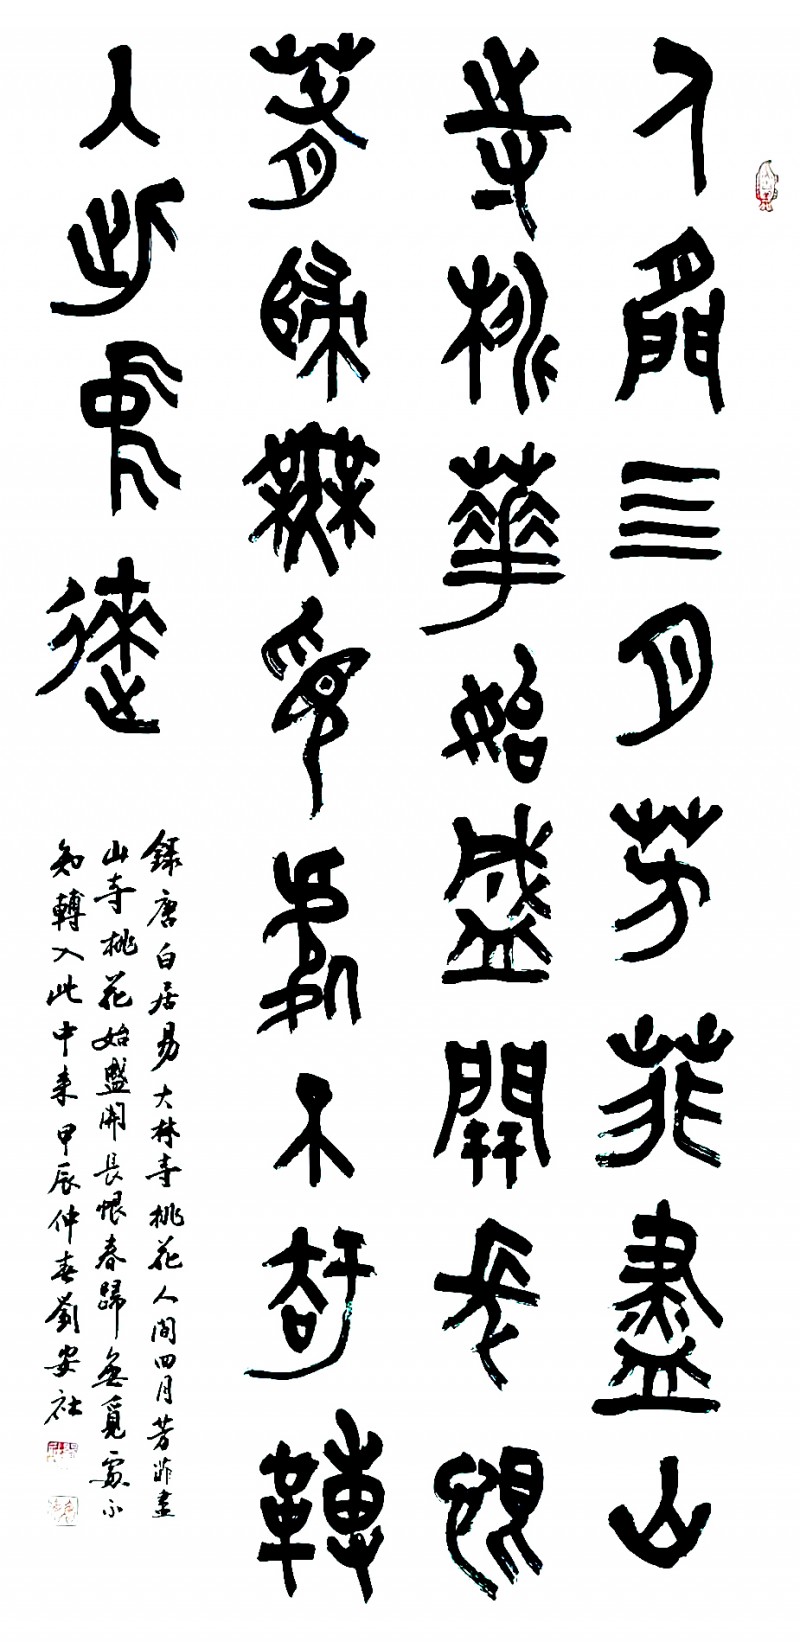 人間四月芳菲盡山
寺桃華始盛開長恨
春歸無覓處不知轉
入此中來
錄唐白居易大林寺桃花人間四月芳菲盡
山寺桃花始盛開長恨春歸無覓處不
知轉入此中來甲辰仲春劉安社